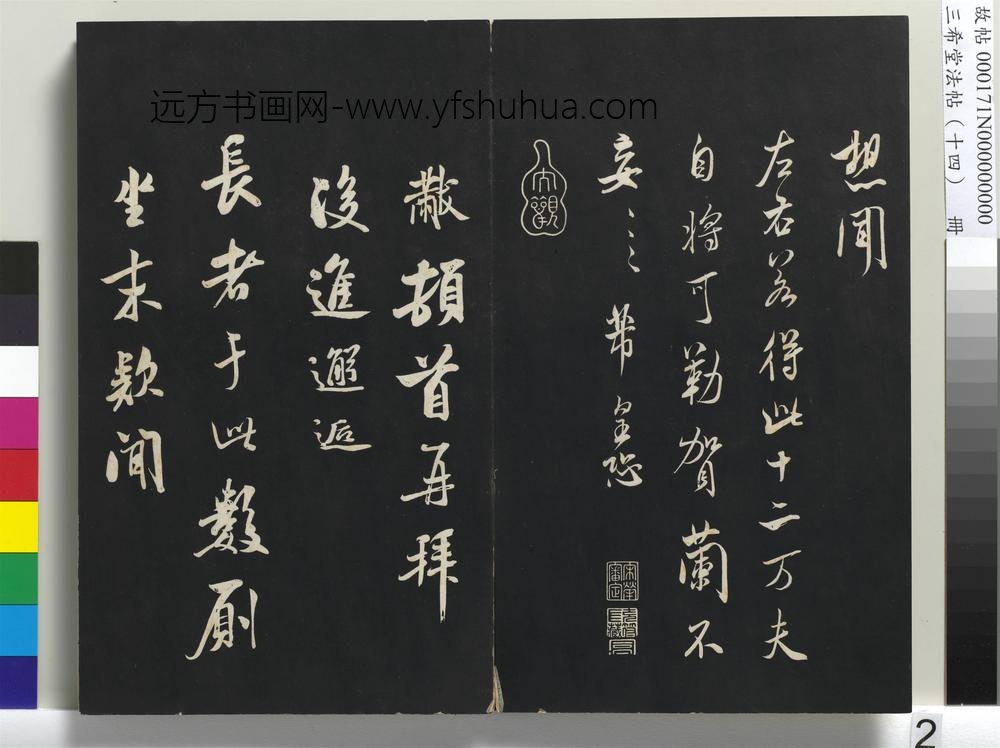 想聞
左右若得此十二万夫
自将可勒賀蘭不
妄〻〻芾皇恐
黻頓首再拜
後進邂逅
長者于此數廁
坐末款聞
远方书画网-www.yfshuhua.com
故帖 000171N000000000
三希堂法帖（十四） 册
2